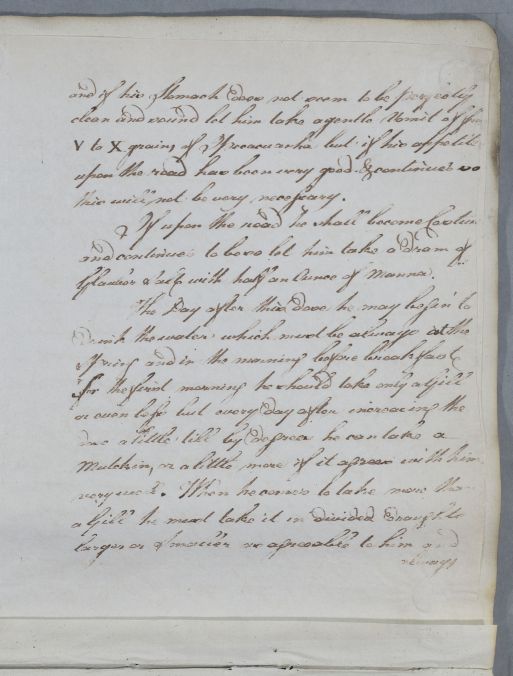 and if his stomach does not seem to be perfectly
clean and sound let him take a gentle Vomit of
V to X grains of Ipecacuanha but if his appetite
upon the road has been very good & continues so
this will not be very necessary.
If upon the road he shall become Costive
and continues to be so let him take a Dram of
Glauber Salts with half an Ounce of Manna.
The Day after this Dose he may begin to
Drink the water which must be always at the
Spring and in the morning before breakfast
For the first morning he should take only a Gill
or even less but every Day after increasing the
Dose a little till by Degrees he can take a
Mutchkin, or a little more if it agrees with him
very well. When he comes to take more than
a Gill he must take it in Divided Draughts
larger or smaller as agreeable to him and
always